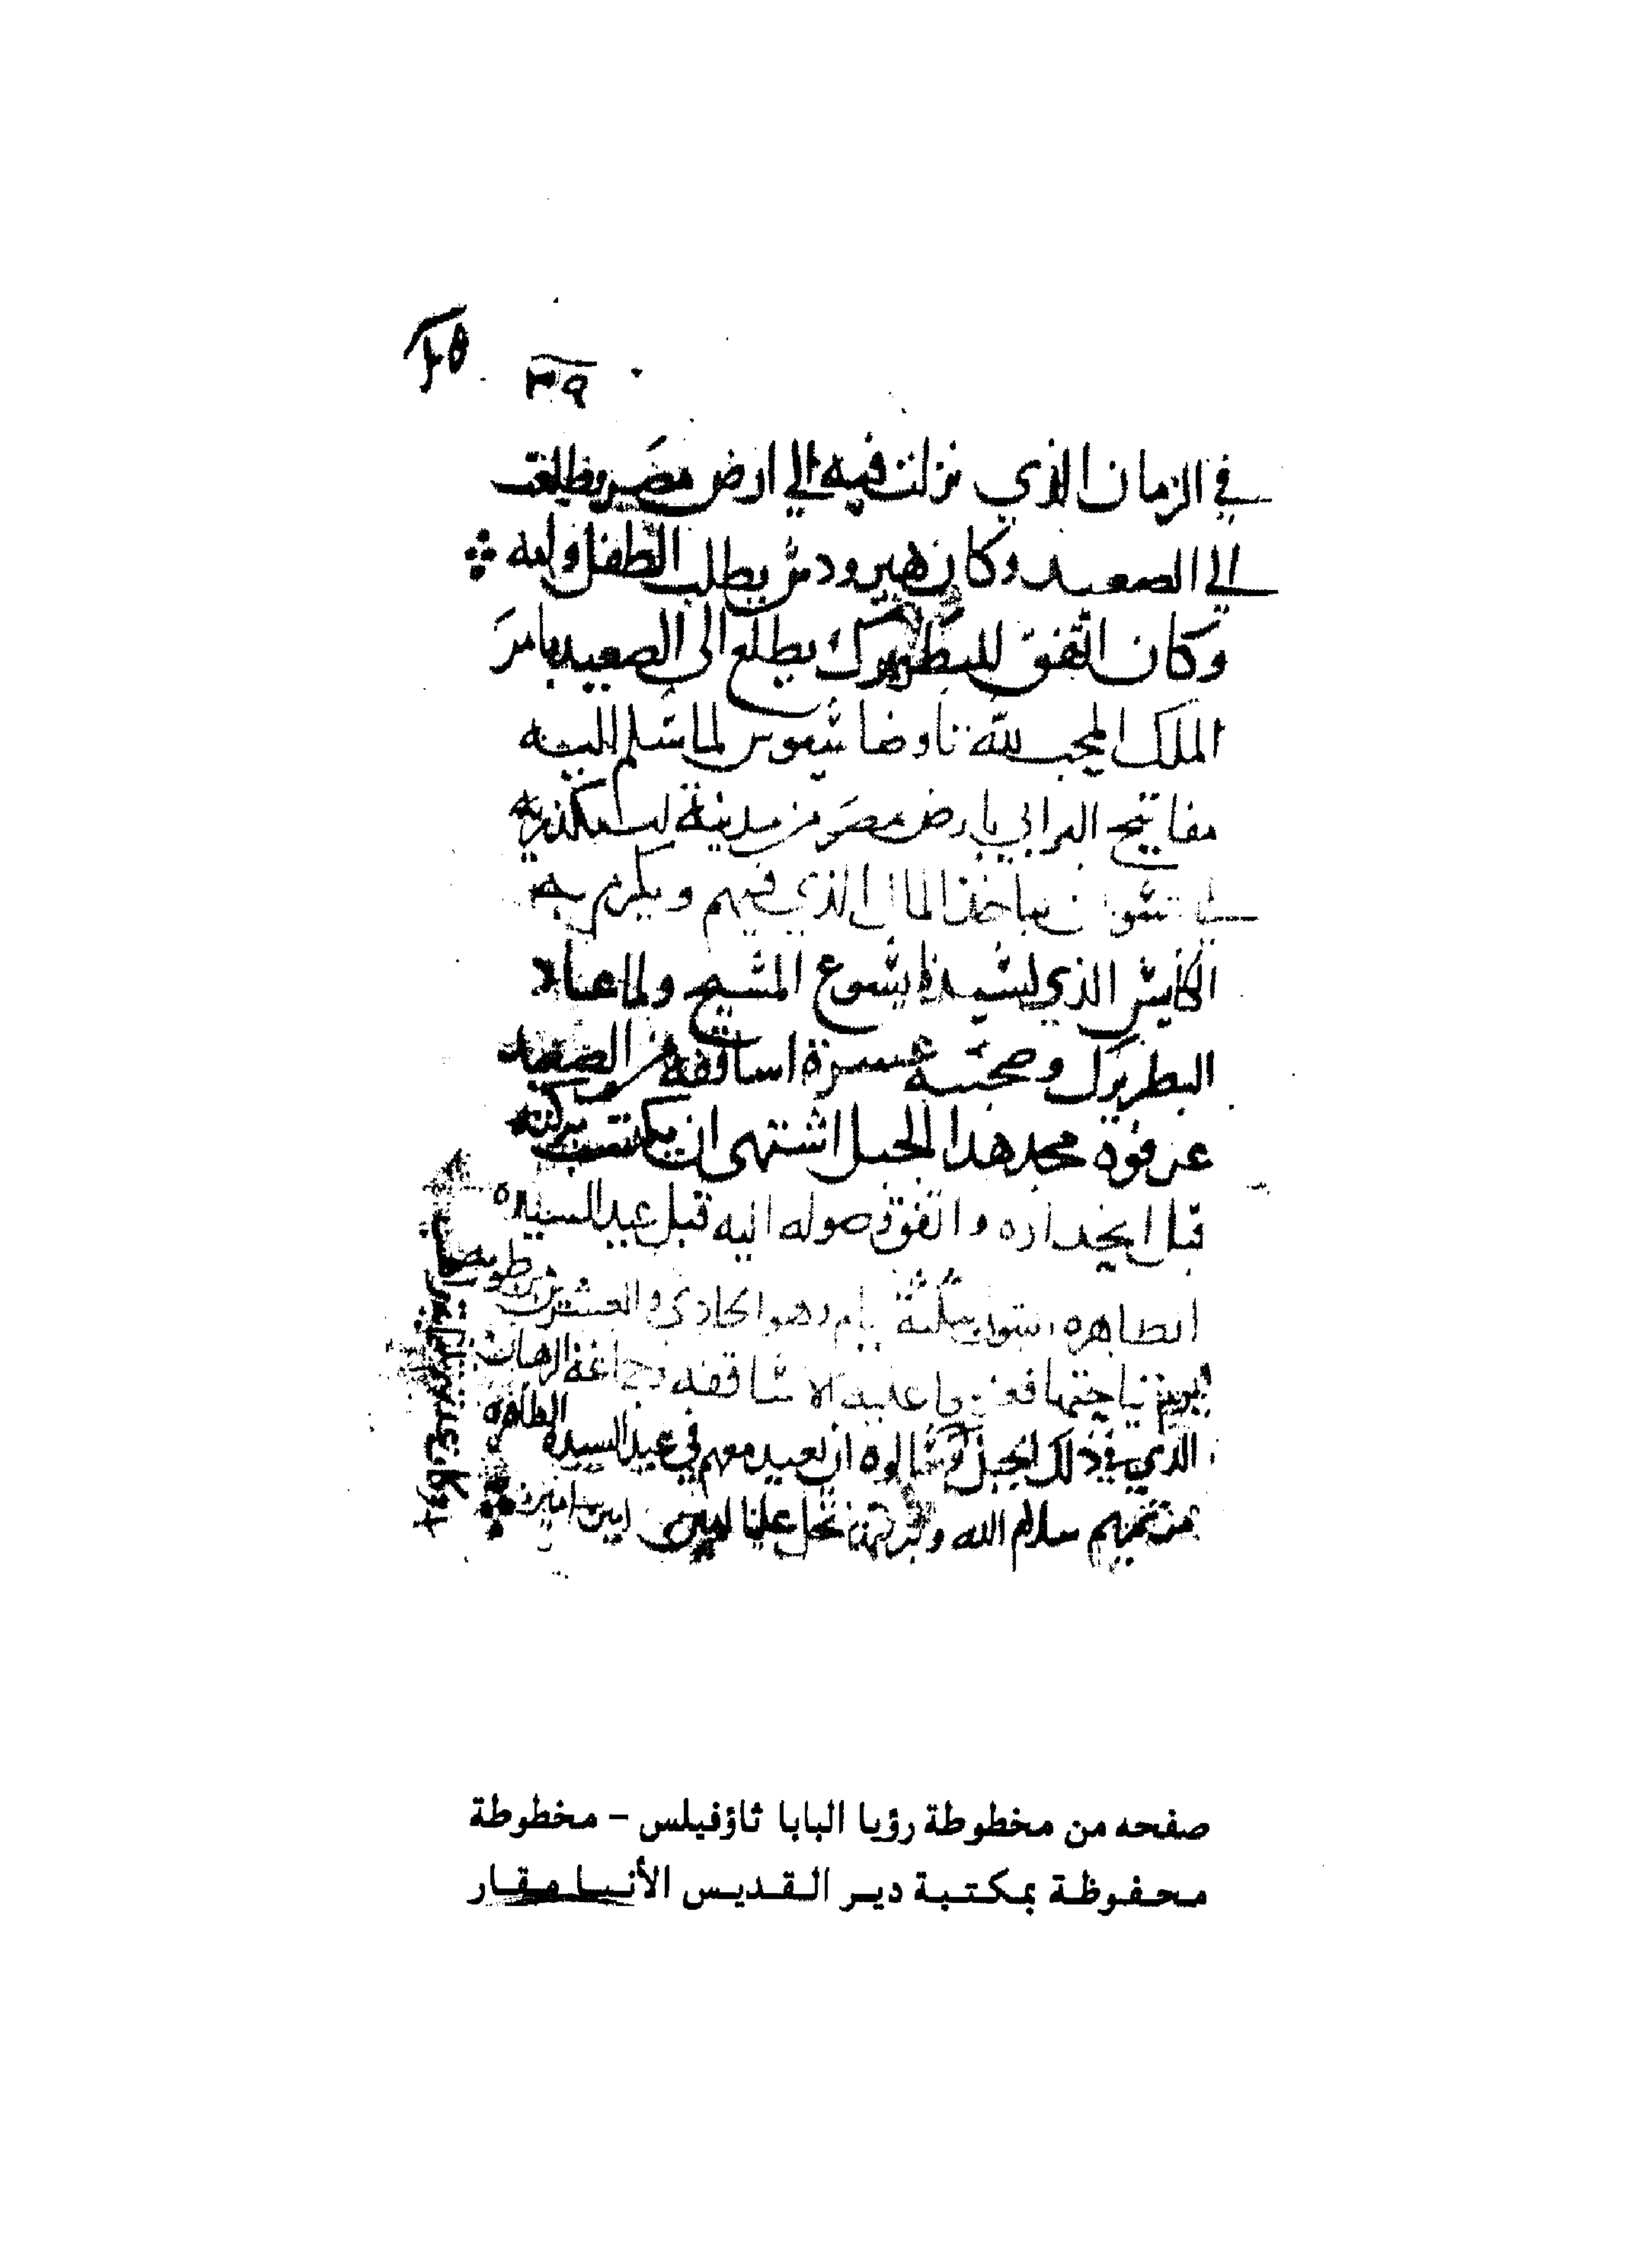 ٣٩
في الزمان الذي نزلت فيه الي ارض مصر وطلعت
الي الصعيد وكان هيرودس يطلب الطفل وامه
وكان اتفق للبطريرك يطلع الى الصعيد بامر
الملك المحب لله تاوضاسيوس لما سلم اليه
مفاتيح البرابي بارض مصر من مدينة اسكندريه
الي ياخذ المال الذي فيهم ويكرم به
الكنايس الذي لسيدنا يسوع المسيح ولما عاد
البطريرك وصحبته عشرة اساقفة من الصعيد
عرفوه مجد هدا الجبل اشتهى ان يكتسب بركته
قبل انحداره واتفق وصوله اليه قبل عيد السيده
الطاهره بتلتة ايام وهو الحادي والعشرين من طوبه
نياحتها عليه الاساقفه وجماعة الرهبان
الذي في ذلك الجبل وسالوه ان يعيد معهم في عيد السيده الطاهره
سلام الله تحل علينا امين امين امين
صفحه من مخطوطة رؤيا البابا ثاؤفيلس - مخطوطة
محفوظة بمكتبة دير القديس الأنبا مقار